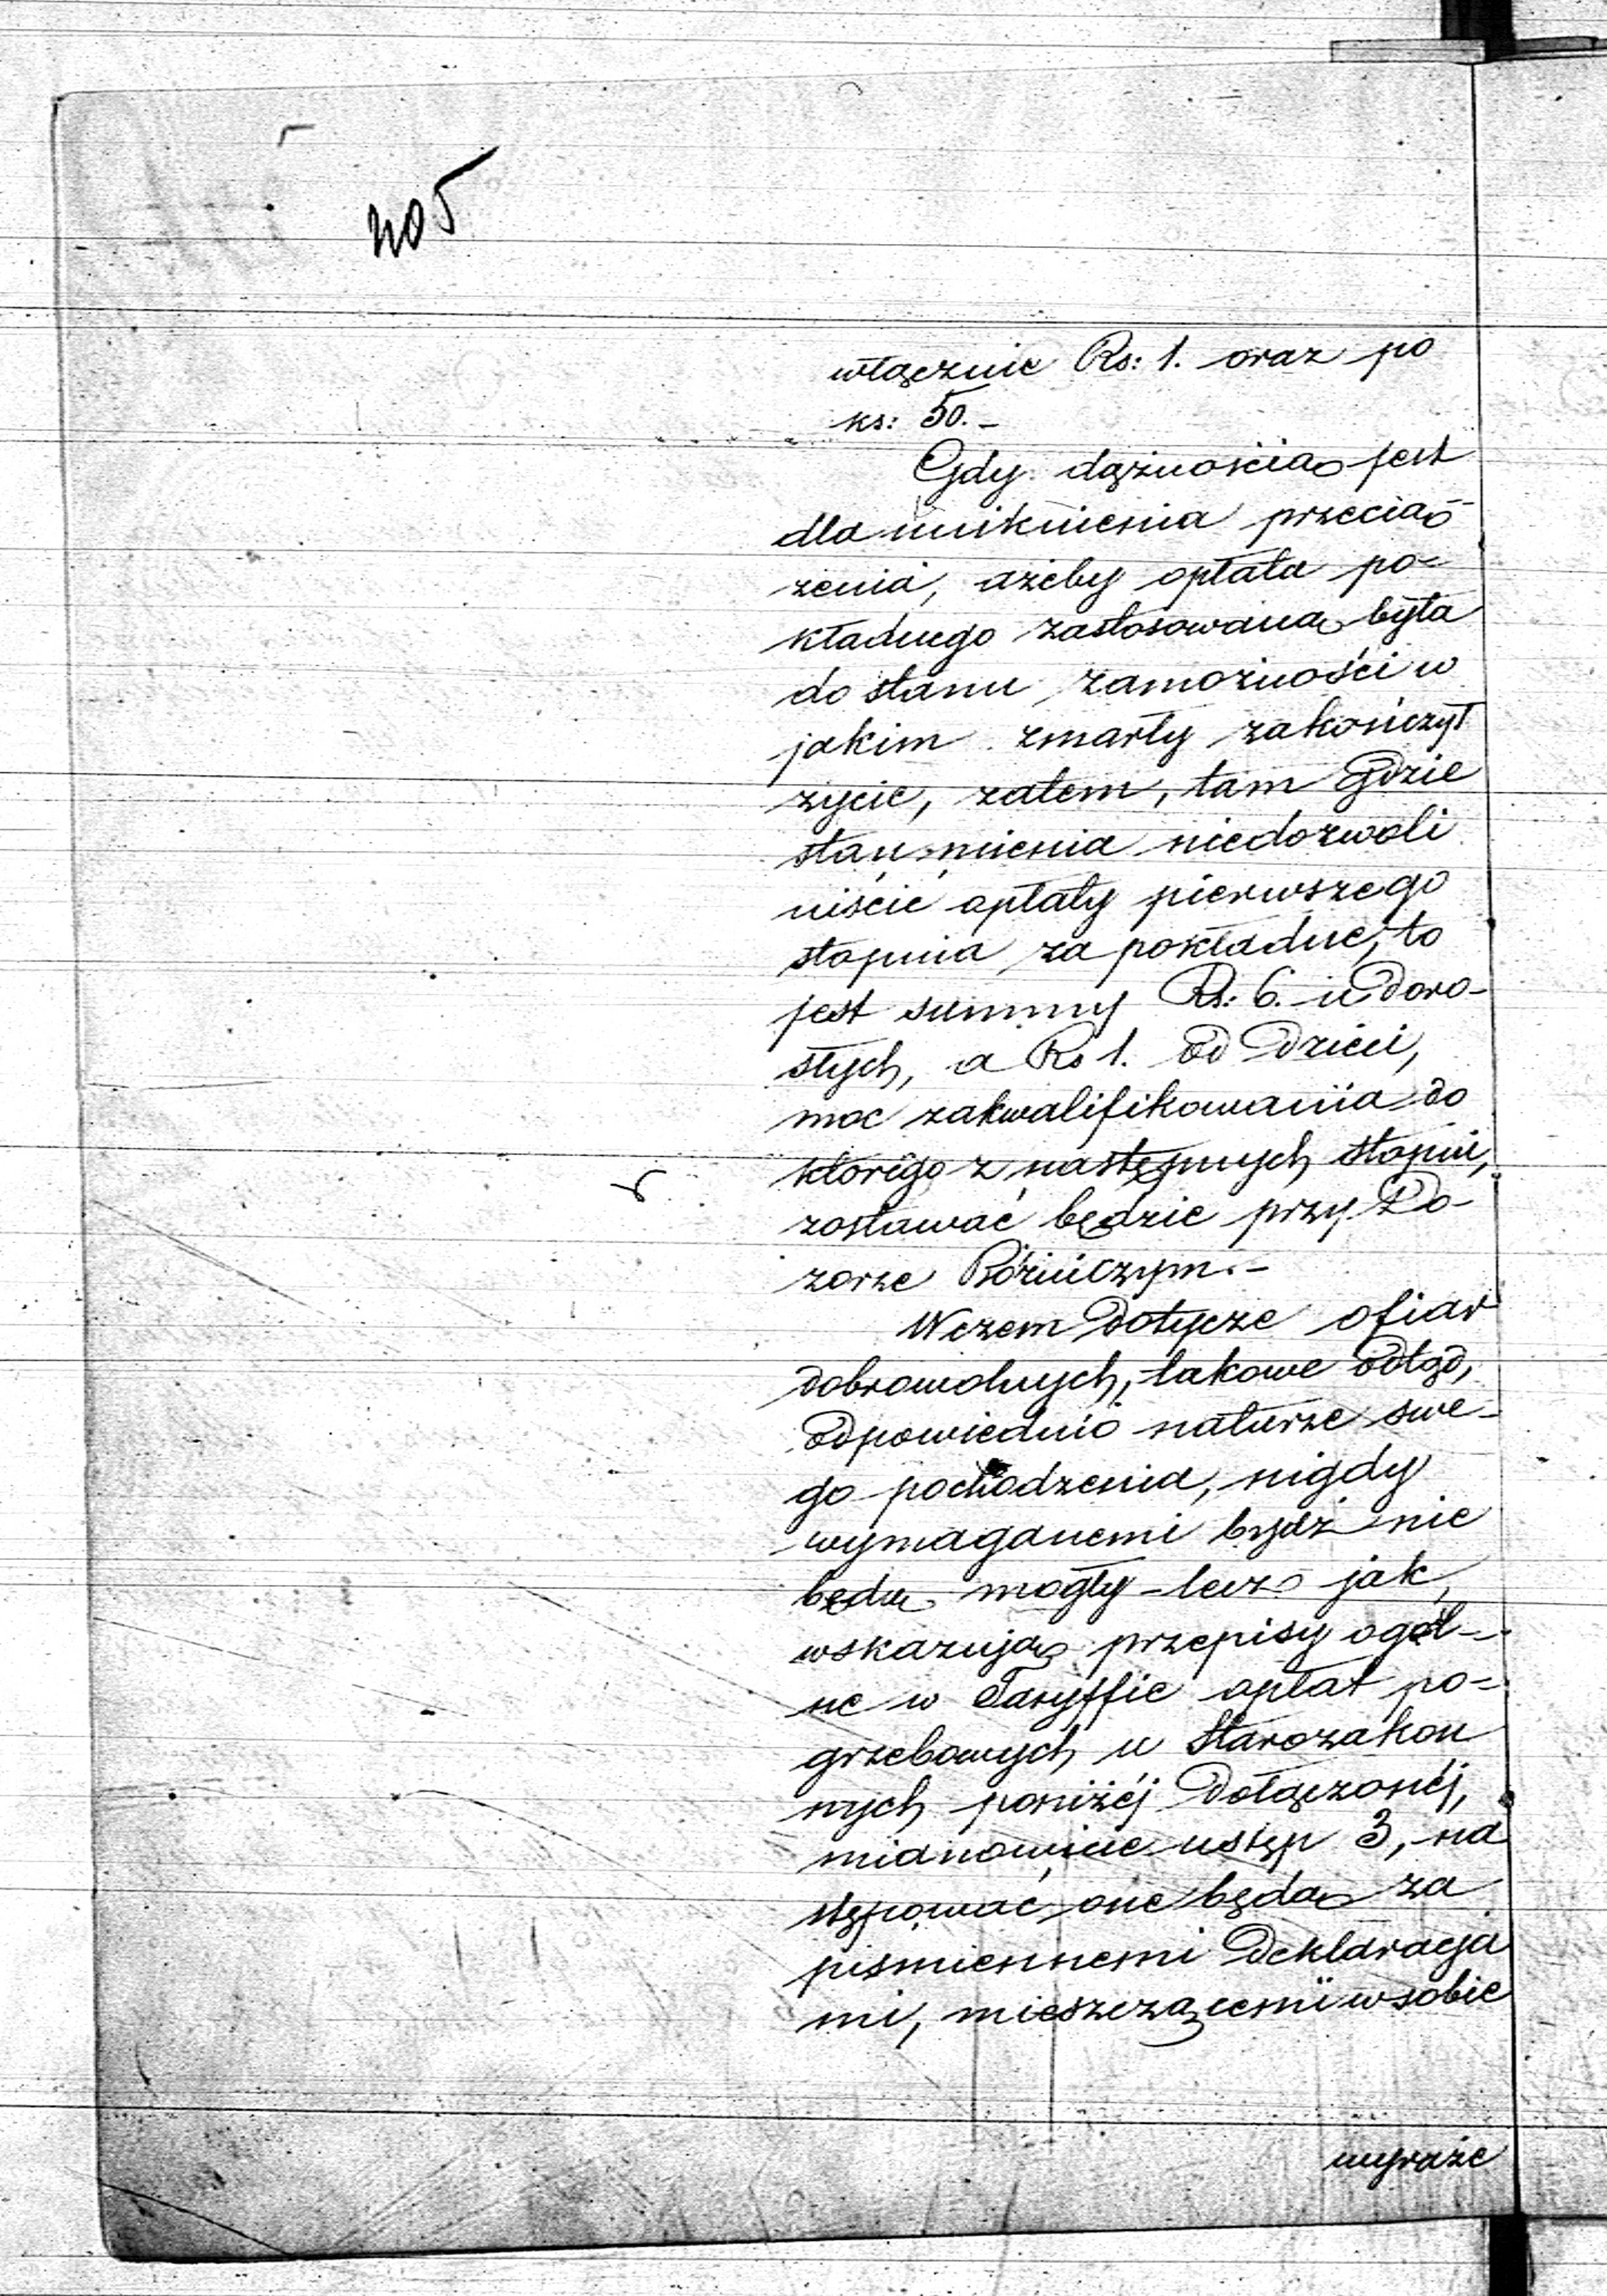 405
włącznie Rs: 1. oraz po
ks: 50.-
Gdy dążnością jest
dla uniknienia przecią-
żenia, ażeby opłata po-
kładnego zastosowaną była
do stanu zamożności w
jakim zmarły zakończył
życie, zatem, tam gdzie
stan mienia niedozwoli
uiścić opłaty pierwszego
stopnia za pokładne, to
jest summy Rs: 6. u doro-
słych, a Rs 1. od dzieci,
moc zakwalifikowania do
którego z następnych stopni,
zostawać będzie przy Do-
zorze Bóżniczym.-
W czem dotycze ofiar
dobrowolnych, takowe odtąd,
odpowiednio naturze swe-
go pochodzenia, nigdy
wymaganemi bydź nie
będą mogły - lecz jak
wskazują przepisy ogól-
ne w Taryffie opłat po-
grzebowych u Starozakon
nych poniżéj dołączonéj,
mianowicie ustęp 3, na
stępować one będą za
piśmiennemi deklaracja
mi, mieszczącemi w sobie
wyraźe